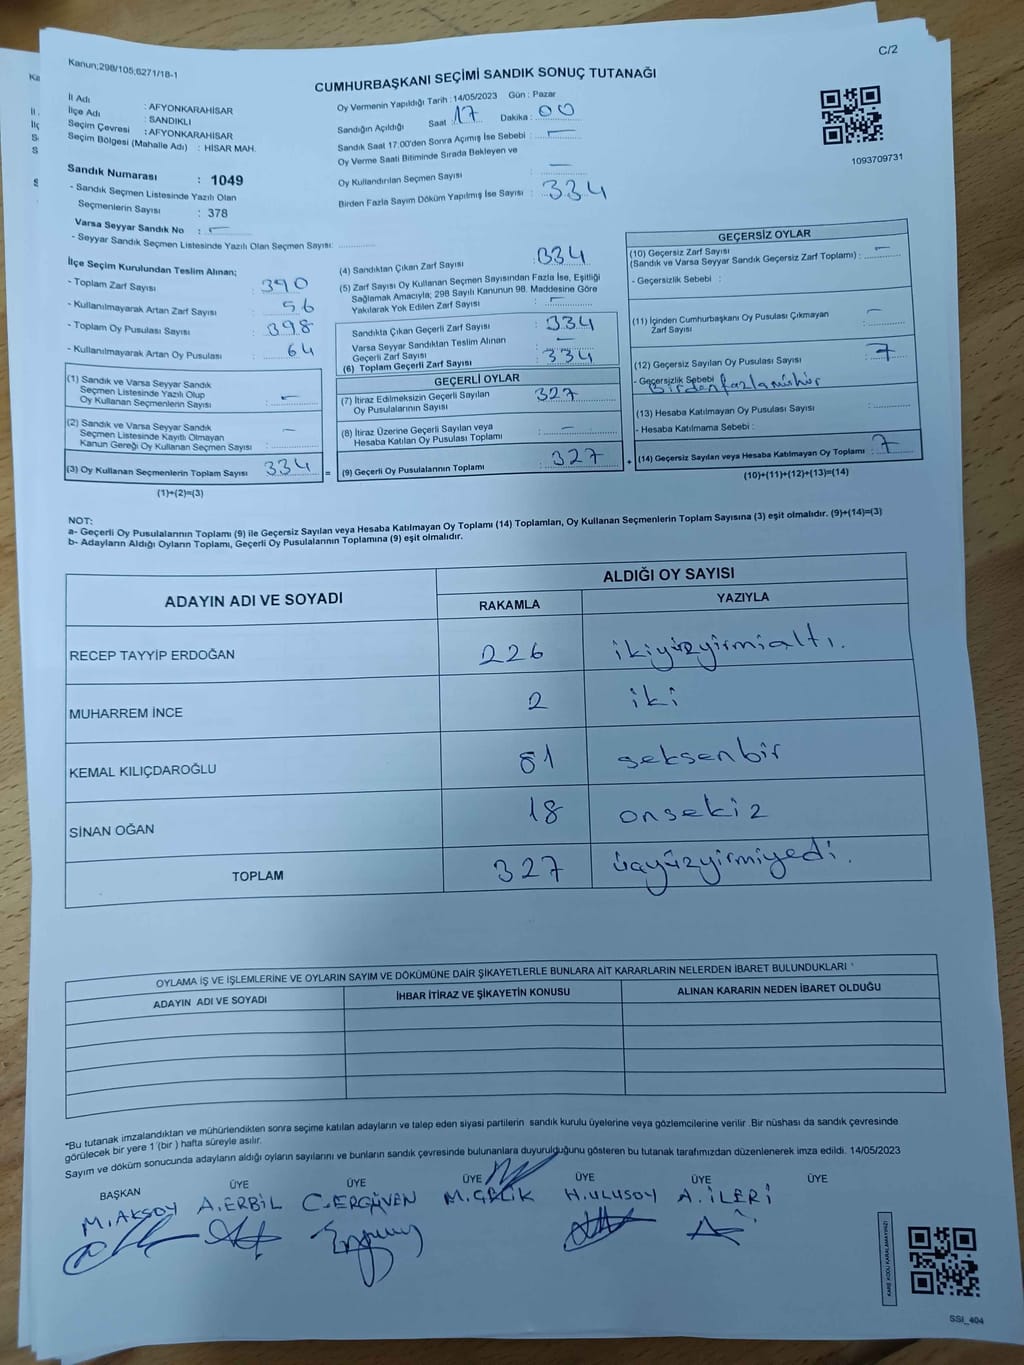 C/2
Kanun;298/105;6271/18-1
CUMHURBAŞKANI SEÇİMİ SANDIK SONUÇ TUTANAĞI
İl Adı : AFYONKARAHİSAR
İlçe Adı : SANDIKLI
Seçim Çevresi : AFYONKARAHİSAR
Seçim Bölgesi (Mahalle Adı) : HİSAR MAH.
Oy Vermenin Yapıldığı Tarih : 14/05/2023 Gün : Pazar
Sandığın Açıldığı Saat : 17 Dakika : 00
Sandık Saat 17:00'den Sonra Açımış İse Sebebi : —
Oy Verme Saati Bitiminde Sırada Bekleyen ve
Oy Kullandırılan Seçmen Sayısı —
Birden Fazla Sayım Döküm Yapılmış İse Sayısı : 334
1093709731
Sandık Numarası : 1049
- Sandık Seçmen Listesinde Yazılı Olan
Seçmenlerin Sayısı : 378
Varsa Seyyar Sandık No : —
- Seyyar Sandık Seçmen Listesinde Yazılı Olan Seçmen Sayısı:
İlçe Seçim Kurulundan Teslim Alınan;
- Toplam Zarf Sayısı : 390
- Kullanılmayarak Artan Zarf Sayısı : 56
- Toplam Oy Pusulası Sayısı : 398
- Kullanılmayarak Artan Oy Pusulası : 64
(1) Sandık ve Varsa Seyyar Sandık
Seçmen Listesinde Yazılı Olup
Oy Kullanan Seçmenlerin Sayısı : —
(2) Sandık ve Varsa Seyyar Sandık
Seçmen Listesinde Kayıtlı Olmayan
Kanun Gereği Oy Kullanan Seçmen Sayısı : —
(3) Oy Kullanan Seçmenlerin Toplam Sayısı 334 =
(1)+(2)=(3)
(4) Sandıktan Çıkan Zarf Sayısı : 334
(5) Zarf Sayısı Oy Kullanan Seçmen Sayısından Fazla İse, Eşitliği
Sağlamak Amacıyla; 298 Sayılı Kanunun 98. Maddesine Göre
Yakılarak Yok Edilen Zarf Sayısı : —
Sandıkta Çıkan Geçerli Zarf Sayısı : 334
Varsa Seyyar Sandıktan Teslim Alınan
Geçerli Zarf Sayısı : —
(6) Toplam Geçerli Zarf Sayısı : 334
GEÇERLİ OYLAR
(7) İtiraz Edilmeksizin Geçerli Sayılan
Oy Pusulasının Sayısı : 327
(8) İtiraz Üzerine Geçerli Sayılan veya
Hesaba Katılan Oy Pusulası Toplamı : —
(9) Geçerli Oy Pusulalarının Toplamı : 327 +
GEÇERSİZ OYLAR
(10) Geçersiz Zarf Sayısı
(Sandık ve Varsa Seyyar Sandık Geçersiz Zarf Toplamı) : —
- Geçersizlik Sebebi :
(11) İçinden Cumhurbaşkanı Oy Pusulası Çıkmayan
Zarf Sayısı : —
(12) Geçersiz Sayılan Oy Pusulası Sayısı : 7
- Geçersizlik Sebebi : Birden fazla mühür
(13) Hesaba Katılmayan Oy Pusulası Sayısı :
- Hesaba Katılmama Sebebi :
(14) Geçersiz Sayılan veya Hesaba Katılmayan Oy Toplamı : 7
(10)+(11)+(12)+(13)=(14)
NOT:
a- Geçerli Oy Pusulalarının Toplamı (9) ile Geçersiz Sayılan veya Hesaba Katılmayan Oy Toplamı (14) Toplamları, Oy Kullanan Seçmenlerin Toplam Sayısına (3) eşit olmalıdır. (9)+(14)=(3)
b- Adayların Aldığı Oyların Toplamı, Geçerli Oy Pusulalarının Toplamına (9) eşit olmalıdır.
ADAYIN ADI VE SOYADI ALDIĞI OY SAYISI
RAKAMLA YAZIYLA
RECEP TAYYİP ERDOĞAN 226 ikiyüzyirmialtı.
MUHARREM İNCE 2 iki
KEMAL KILIÇDAROĞLU 81 seksenbir
SİNAN OĞAN 18 onsekiz
TOPLAM 327 üçyüzyirmiyedi.
OYLAMA İŞ VE İŞLEMLERİNE VE OYLARIN SAYIM VE DÖKÜMÜNE DAİR ŞİKAYETLERLE BUNLARA AİT KARARLARIN NELERDEN İBARET BULUNDUKLARI *
ADAYIN ADI VE SOYADI İHBAR İTİRAZ VE ŞİKAYETİN KONUSU ALINAN KARARIN NEDEN İBARET OLDUĞU
*Bu tutanak imzalandıktan ve mühürlendikten sonra seçime katılan adayların ve talep eden siyasi partilerin sandık kurulu üyelerine veya gözlemcilerine verilir .Bir nüshası da sandık çevresinde
görülecek bir yere 1 (bir ) hafta süreyle asılır.
Sayım ve döküm sonucunda adayların aldığı oyların sayılarını ve bunların sandık çevresinde bulunanlara duyurulduğunu gösteren bu tutanak tarafımızdan düzenlenerek imza edildi. 14/05/2023
BAŞKAN ÜYE ÜYE ÜYE ÜYE ÜYE ÜYE
M.AKSOY A.ERBİL C.ERGÜVEN M.ÇELİK H.ULUSOY A.İLERİ
KARE KODU KARALAMAYINIZ!
SSI_404